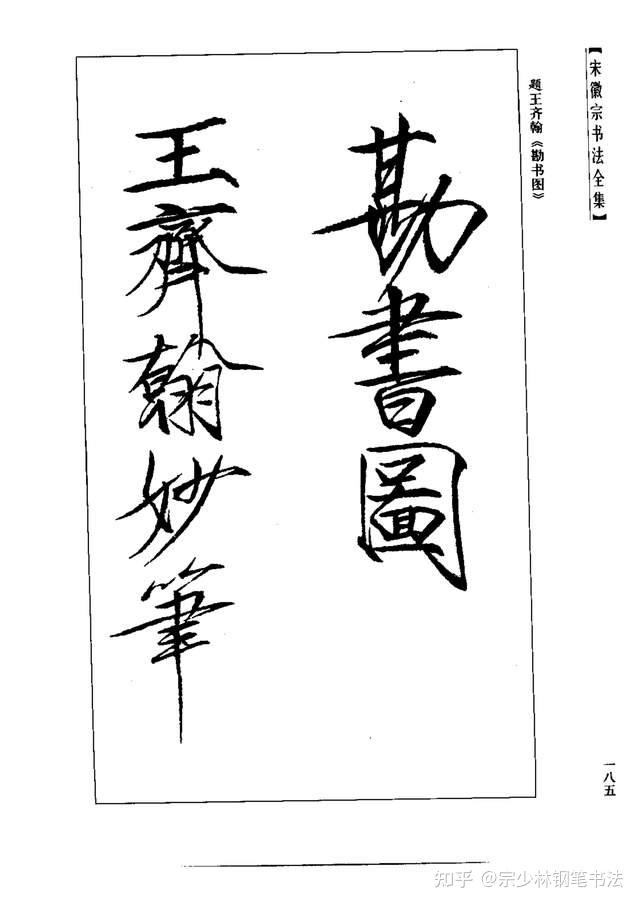 【宋徽宗书法全集】
题王齐翰《勘书图》
勘書圖
王齊翰妙筆
一八五
知乎 @宗少林钢笔书法